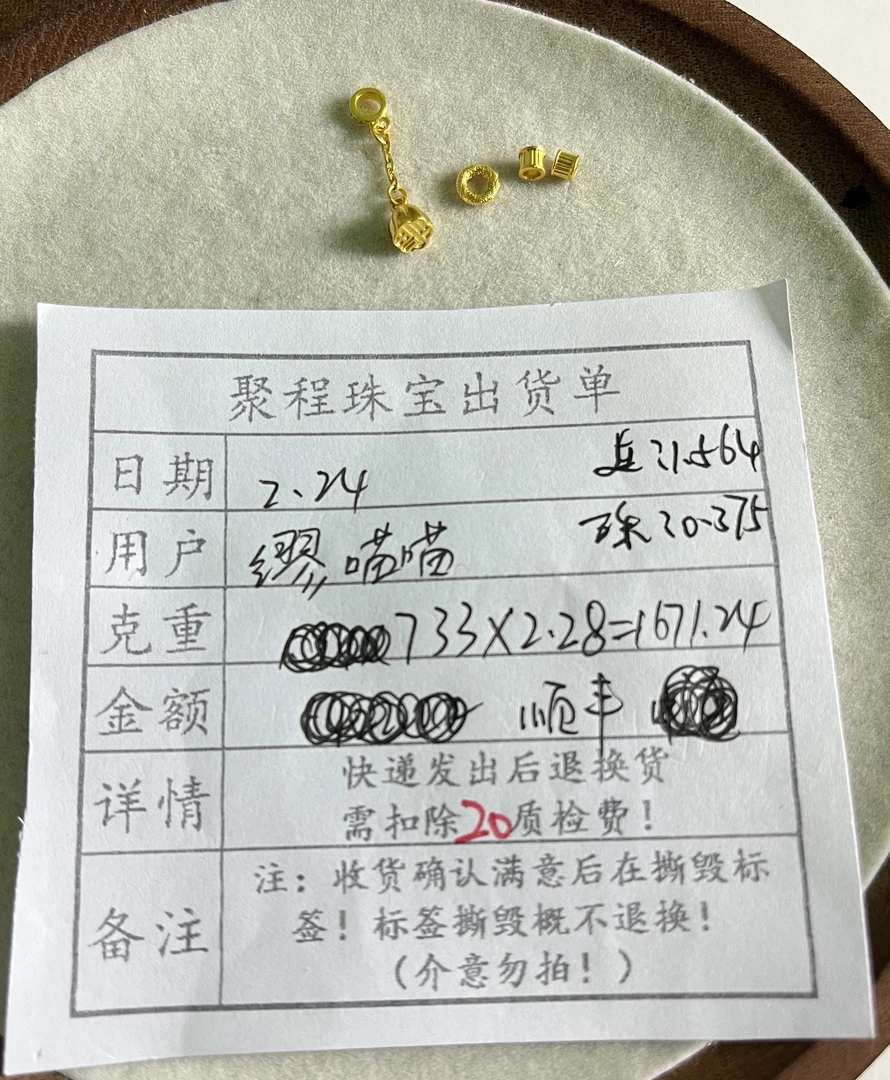 聚程珠宝出货单
日期 2.24 21.564
用户 缪喵喵 珠20.375
克重 733×2.28=1671.24
金额 顺丰
详情 快递发出后退换货
需扣除20质检费！
备注 注：收货确认满意后在撕毁标
签！标签撕毁概不退换！
（介意勿拍！）